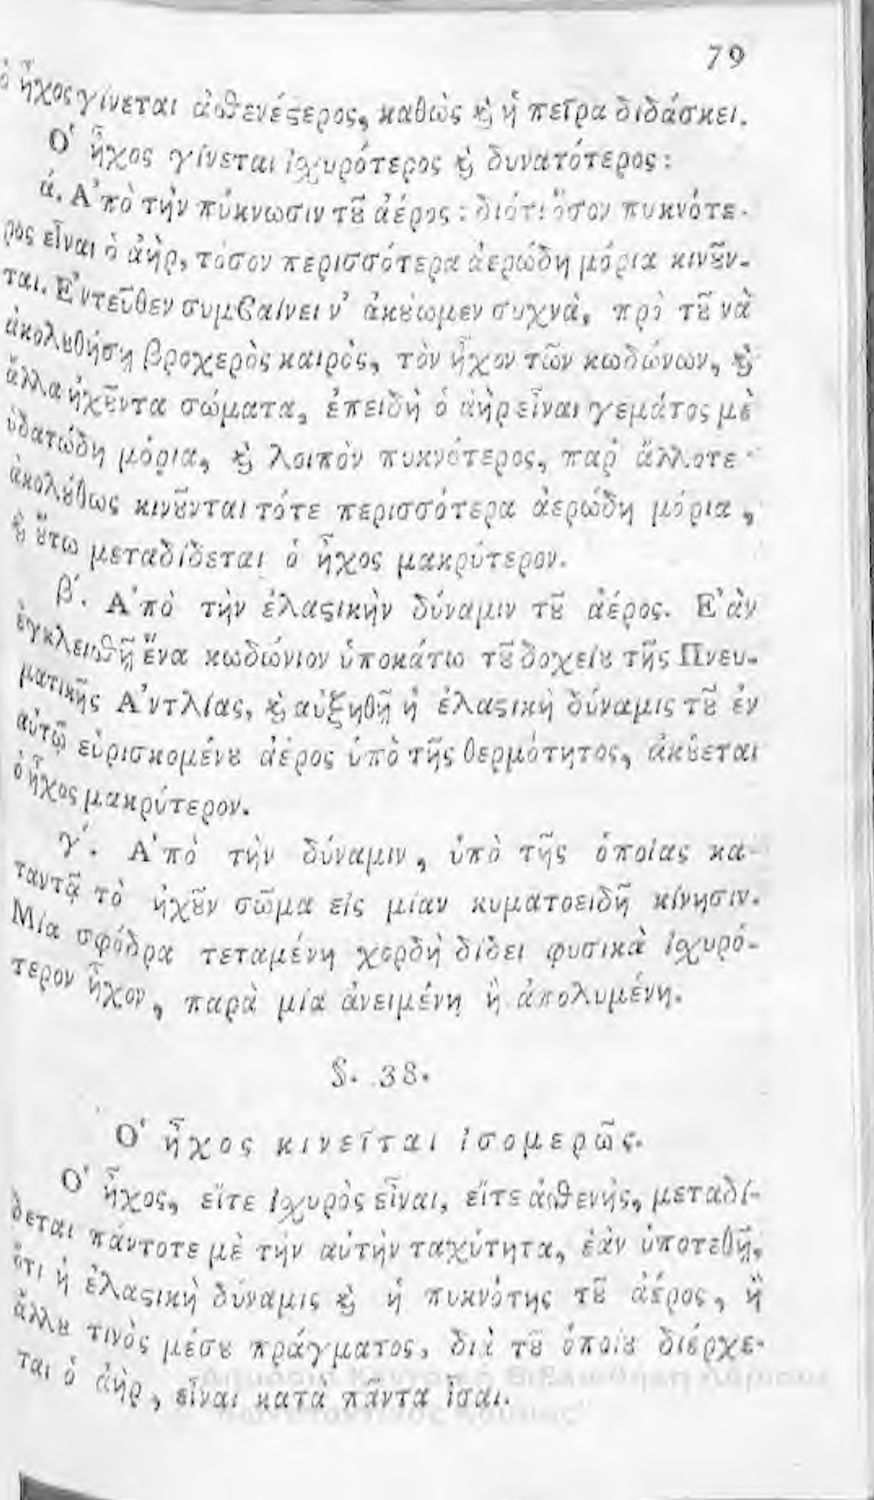 79
ὁ ἦχος γίνεται ἀσθενέϛερος, καθὼς ϗ ἡ πεῖρα διδάσκει.
Ὁ ἦχος γίνεται ἰσχυρότερος ϗ δυνατότερος:
ά. Ἀπὸ τὴν πύκνωσιν τȣ͂ ἀέρος: διότι ὅσον πυκνότε-
ρος εἶναι ὁ ἀὴρ, τόσον περισσότερα ἀερώδη μόρια κινȣ͂ν-
ται. Ἐντεῦθεν συμβαίνει ν' ἀκȣ́ωμεν συχνὰ, πρὸ τȣ͂ νὰ
ἀκολȣθήσῃ βροχερὸς καιρὸς, τὸν ἦχον τῶν κωδώνων, ϗ
ἄλλα ἠχȣ͂ντα σώματα, ἐπειδὴ ὁ ἀὴρ εἶναι γεμάτος μὲ
ὑδατώδη μόρια, ϗ λοιπὸν πυκνότερος, παρ' ἄλλοτε·
ἀκολȣ́θως κινȣ͂νται τότε περισσότερα ἀερώδη μόρια,
ϗ ȣ̔́τω μεταδίδεται ὁ ἦχος μακρύτερον.
β'. Ἀπὸ τὴν ἐλαϛικὴν δύναμιν τȣ͂ ἀέρος. Ἐὰν
ἐγκλεισθῇ ἕνα κωδώνιον ὑποκάτω τȣ͂ δοχείȣ τῆς Πνευ-
ματικῆς Ἀντλίας, ϗ αὐξηθῇ ἡ ἐλαϛικὴ δύναμις τȣ͂ ἐν
αὐτῷ εὑρισκομένȣ ἀέρος ὑπὸ τῆς θερμότητος, ἀκȣ́εται
ὁ ἦχος μακρύτερον.
γ'. Ἀπὸ τὴν δύναμιν, ὑπὸ τῆς ὁποίας κα-
ταντᾷ τὸ ἠχȣ͂ν σῶμα εἰς μίαν κυματοειδῆ κίνησιν.
Μία σφόδρα τεταμένη χορδὴ δίδει φυσικὰ ἰσχυρό-
τερον ἦχον, παρὰ μία ἀνειμένη ἢ ἀπολυμένη.
§. 38.
Ὁ ἦχος κινεῖται ἰσομερῶς.
Ὁ ἦχος, εἴτε ἰσχυρὸς εἶναι, εἴτε ἀσθενὴς, μεταδί-
δεται πάντοτε μὲ τὴν αὐτὴν ταχύτητα, ἐὰν ὑποτεθῇ,
ὅτι ἡ ἐλαϛικὴ δύναμις ϗ ἡ πυκνότης τȣ͂ ἀέρος, ἢ
ἄλλȣ τινὸς μέσȣ πράγματος, διὰ τȣ͂ ὁποίȣ διέρχε-
ται ὁ ἀὴρ, εἶναι κατα πάντα ἴσαι.
Δημόσια Κεντρική Βιβλιοθήκη Λάρισας